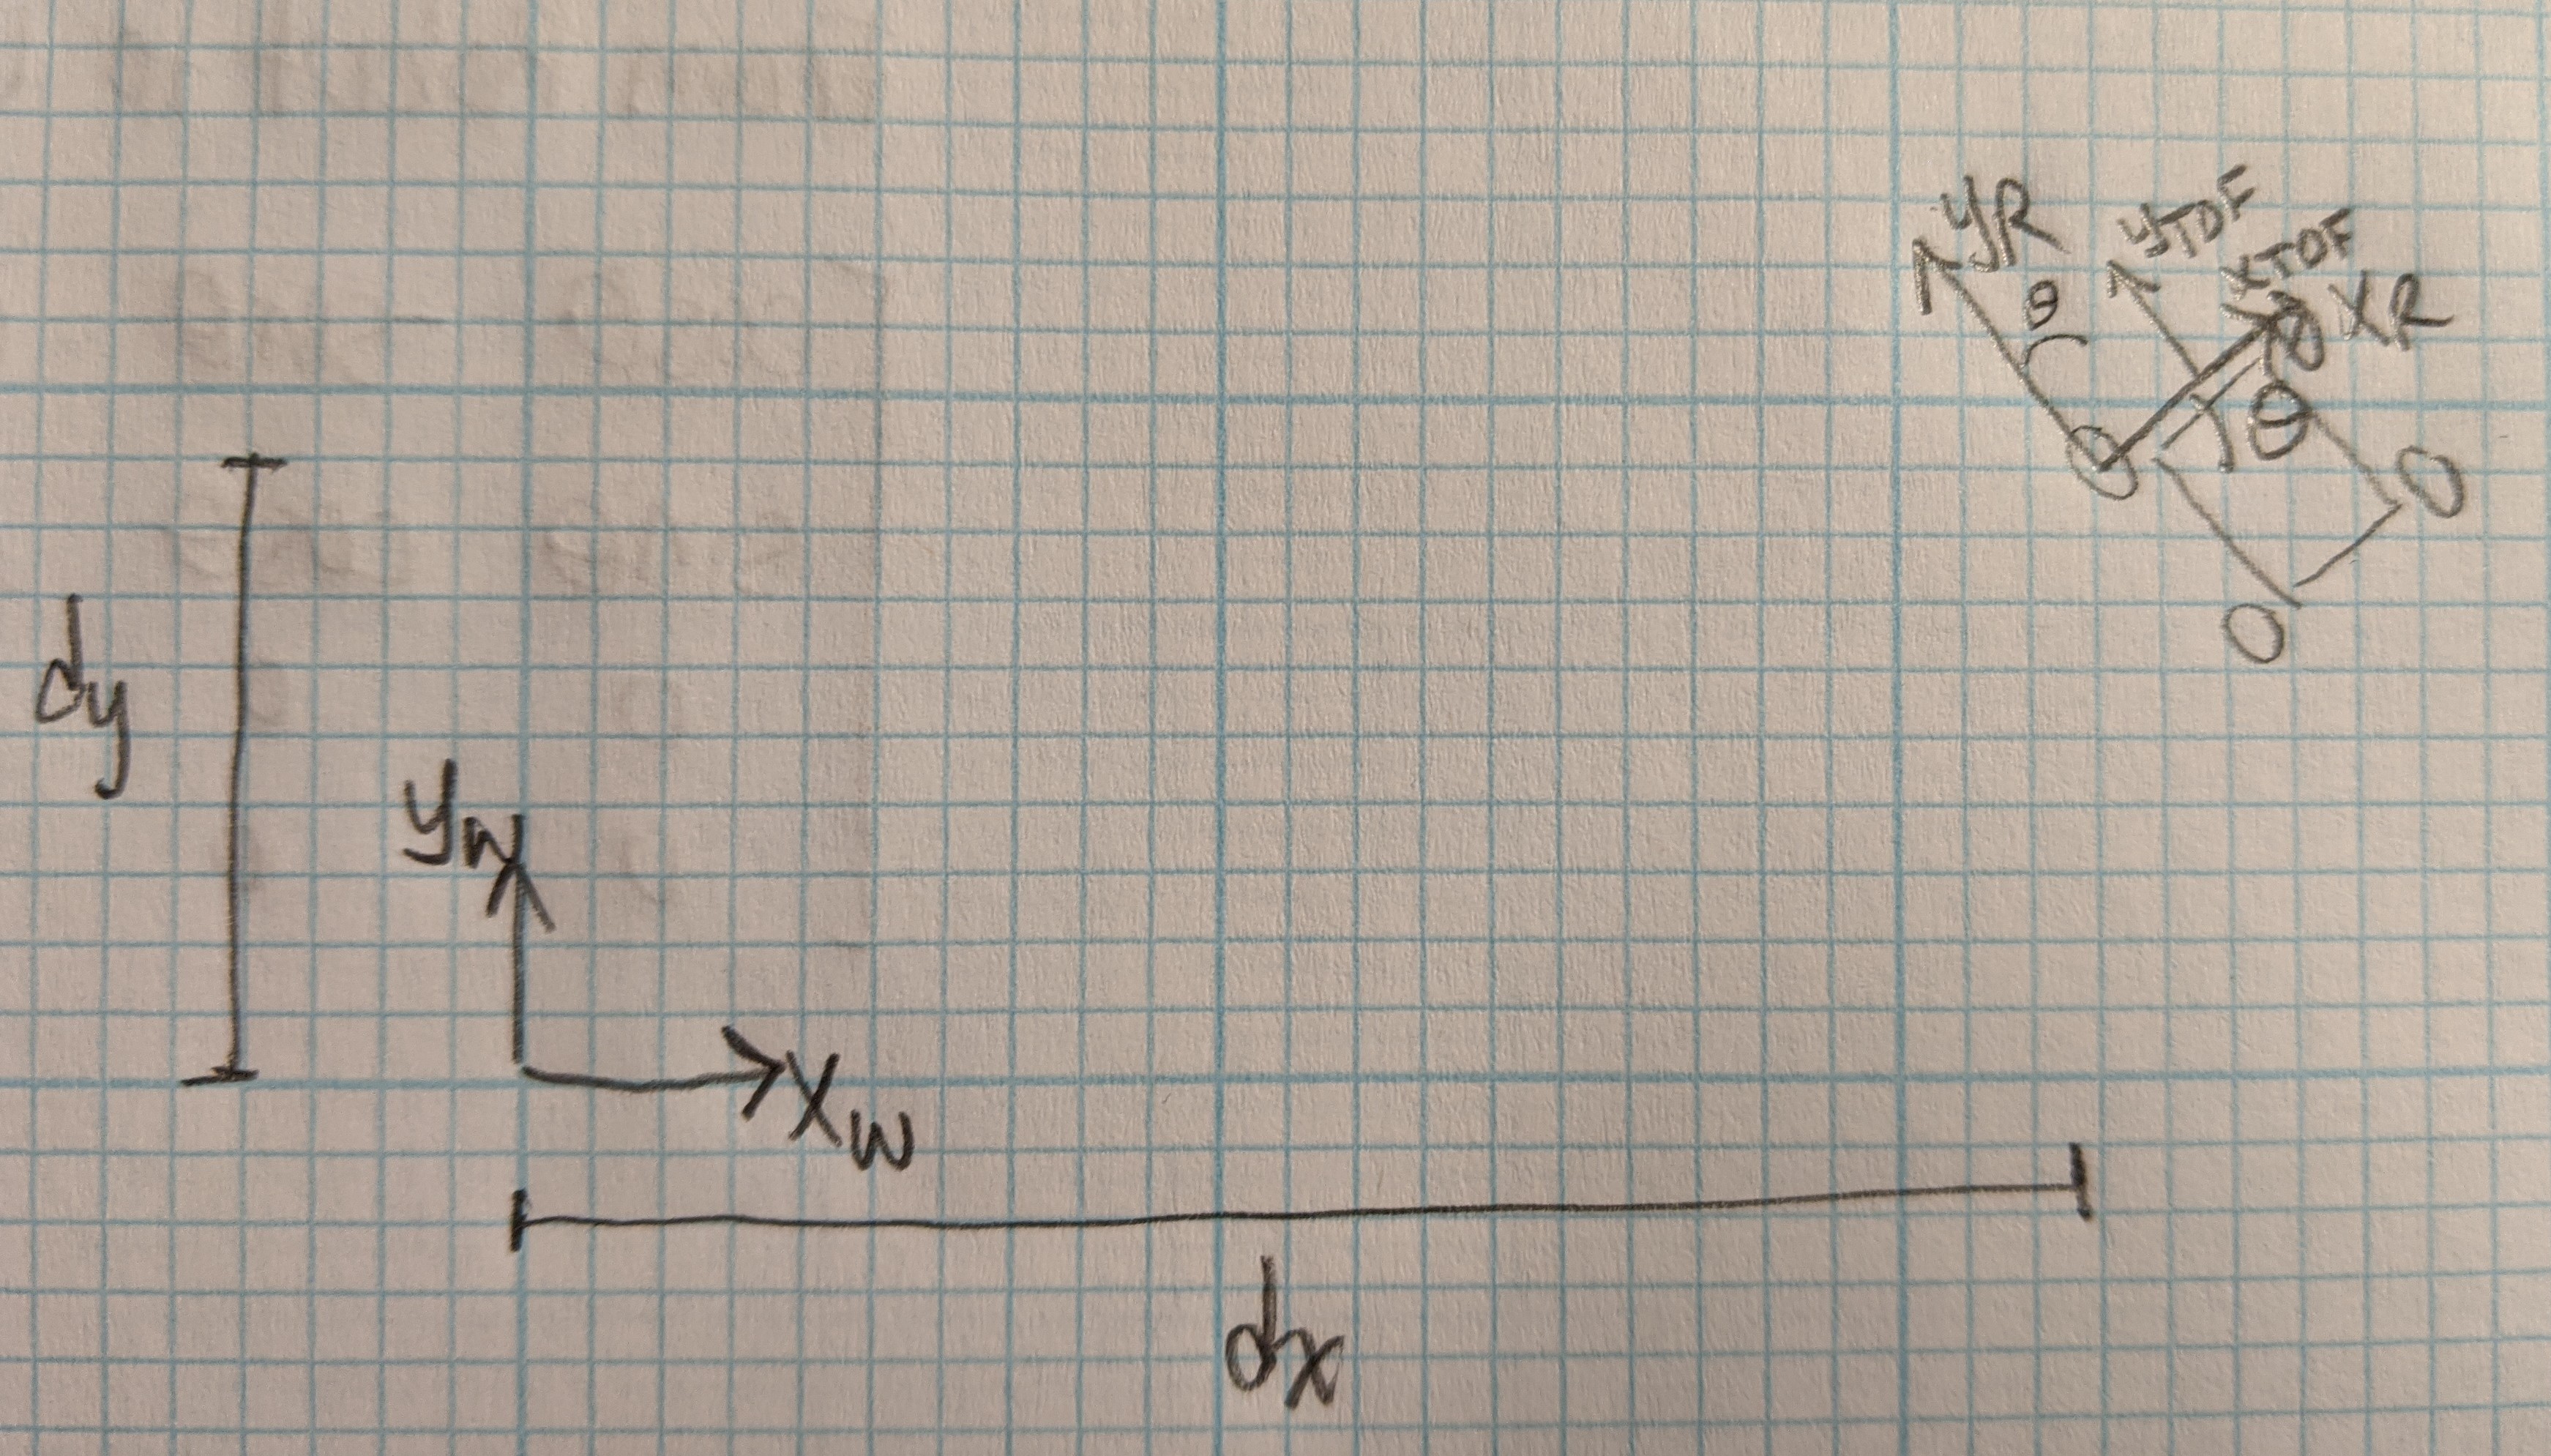 yR
yTOF
xTOF
θ
xR
θ
dy
yw
xw
dx